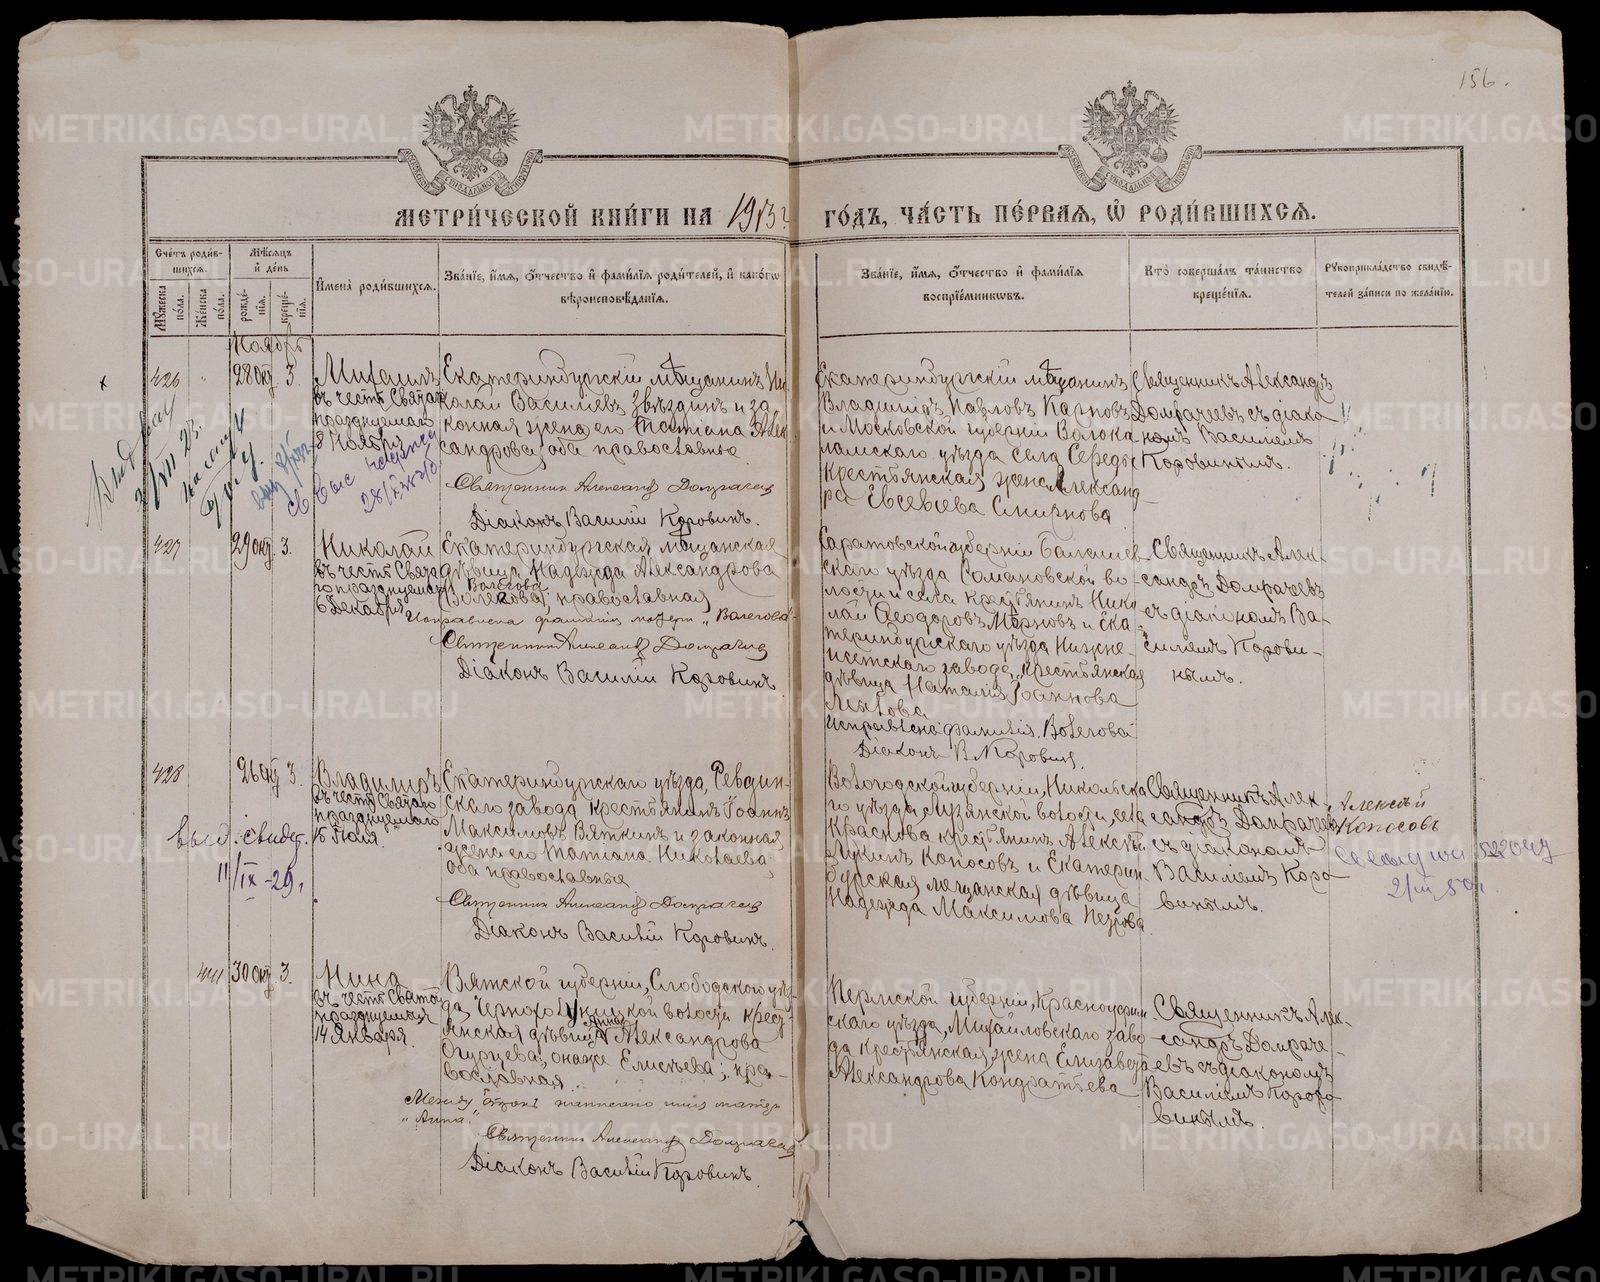 156.
МЕТРИ́ЧЕСКОЙ КНИ́ГИ НА 1913 г
ГО́ДЪ, ЧА́СТЬ ПЕ́РВАЯ, Ѡ РОДИ́ВШИХСЯ.
Сче́тъ роди́в-
шихся.
Му́жеска по́ла.
Же́нска по́ла.
Мѣ́сяцъ
и҆ де́нь
рожде́-
нїя.
креще́-
нїя.
И҆мена̀ роди́вшихся.
Зва́нїе, и҆́мя, ѻ҆́тчество и҆ фами́лїя роди́телей, и҆ како́гѡ
вѣроисповѣ́данїя.
Зва́нїе, и҆́мя, ѻ҆́тчество и҆ фами́лїя
воспрїе́мниковъ.
Кто̀ соверша́лъ та́инство
креще́нїя.
Рукоприкла́дство свидѣ́-
телей за́писи по жела́нїю.
Ноябрь
426
"
28 окт
3.
Михаилъ
въ честь Святаго
празднуемаго
8 Ноября
Екатеринбургскій мѣщанинъ Ни-
колай Васильевъ Звѣздинъ и за-
конная жена его Татіана Алек-
сандрова, оба православные.
Священникъ Александръ Домрачевъ
Діаконъ Василій Коровинъ.
Екатеринбургскій мѣщанинъ
Владиміръ Павловъ Карповъ
и Московской губерніи Волоко-
ламскаго уѣзда села Середы
крестьянская жена Александ-
ра Евсевіева Смирнова.
Священникъ Александръ
Домрачевъ съ діако-
номъ Василіемъ
Коровинымъ.
427
29 окт.
3.
Николай
въ честь Свята-
го празднуемаго
6 Декабря
Екатеринбургская мѣщанская
дѣвица Надежда Александрова
Волегова
православная
Исправлена фамилія матери "Волегова"
Священникъ Александръ Домрачевъ
Діаконъ Василій Коровинъ
Саратовской губерніи Балашев-
скаго уѣзда Романовской во-
лости и села крестьянинъ Нико-
лай Ѳеодоровъ и Ека-
теринбургскаго уѣзда Нижне-
исетскаго завода, крестьянская
дѣвица Наталія Іоаннова
Исправлена фамилія Волегова
Діаконъ В. Коровинъ.
Священникъ Алек-
сандръ Домрачевъ
съ діакономъ Ва-
силіемъ Корови-
нымъ.
428
26 окт
3.
Владиміръ
въ честь Святаго
празднуемаго
15 Іюля.
выд. свидет.
11/IX-29 г
Екатеринбургскаго уѣзда, Ревдин-
скаго завода крестьянинъ Іоаннъ
Максимовъ Вяткинъ и законная
жена его Татіана Николаева,
оба православные
Священникъ Александръ Домрачевъ
Діаконъ Василій Коровинъ.
Вологодской губерніи, Никольска-
го уѣзда, волости, села
Краснова крестьянинъ Алексѣй
Лукинъ Копосовъ и Екатерин-
бургская мѣщанская дѣвица
Надежда Максимова
Священникъ Алек-
сандръ Домрачевъ
съ діакономъ
Василіемъ Коро-
винымъ.
Алексѣй
Копосовъ
441
30 окт
3.
Нина
въ честь Святой
празднуемая
14 Января.
Вятской губерніи, Слободского уѣз-
да, волости крест-
янская дѣвица Анна Александрова
Огурцева, она же Елисѣева; пра-
вославная
Между строкъ написано имя матери
"Анна"
Священникъ Александръ Домрачевъ
Діаконъ Василій Коровинъ.
Пермской губерніи, Красноуфим-
скаго уѣзда, Михайловскаго заво-
да крестьянская жена Елизавета
Александрова Кондратьева
Священникъ Алек-
сандръ Домраче-
евъ съ діакономъ
Василіемъ Коро-
винымъ.
METRIKI.GASO-URAL.RU